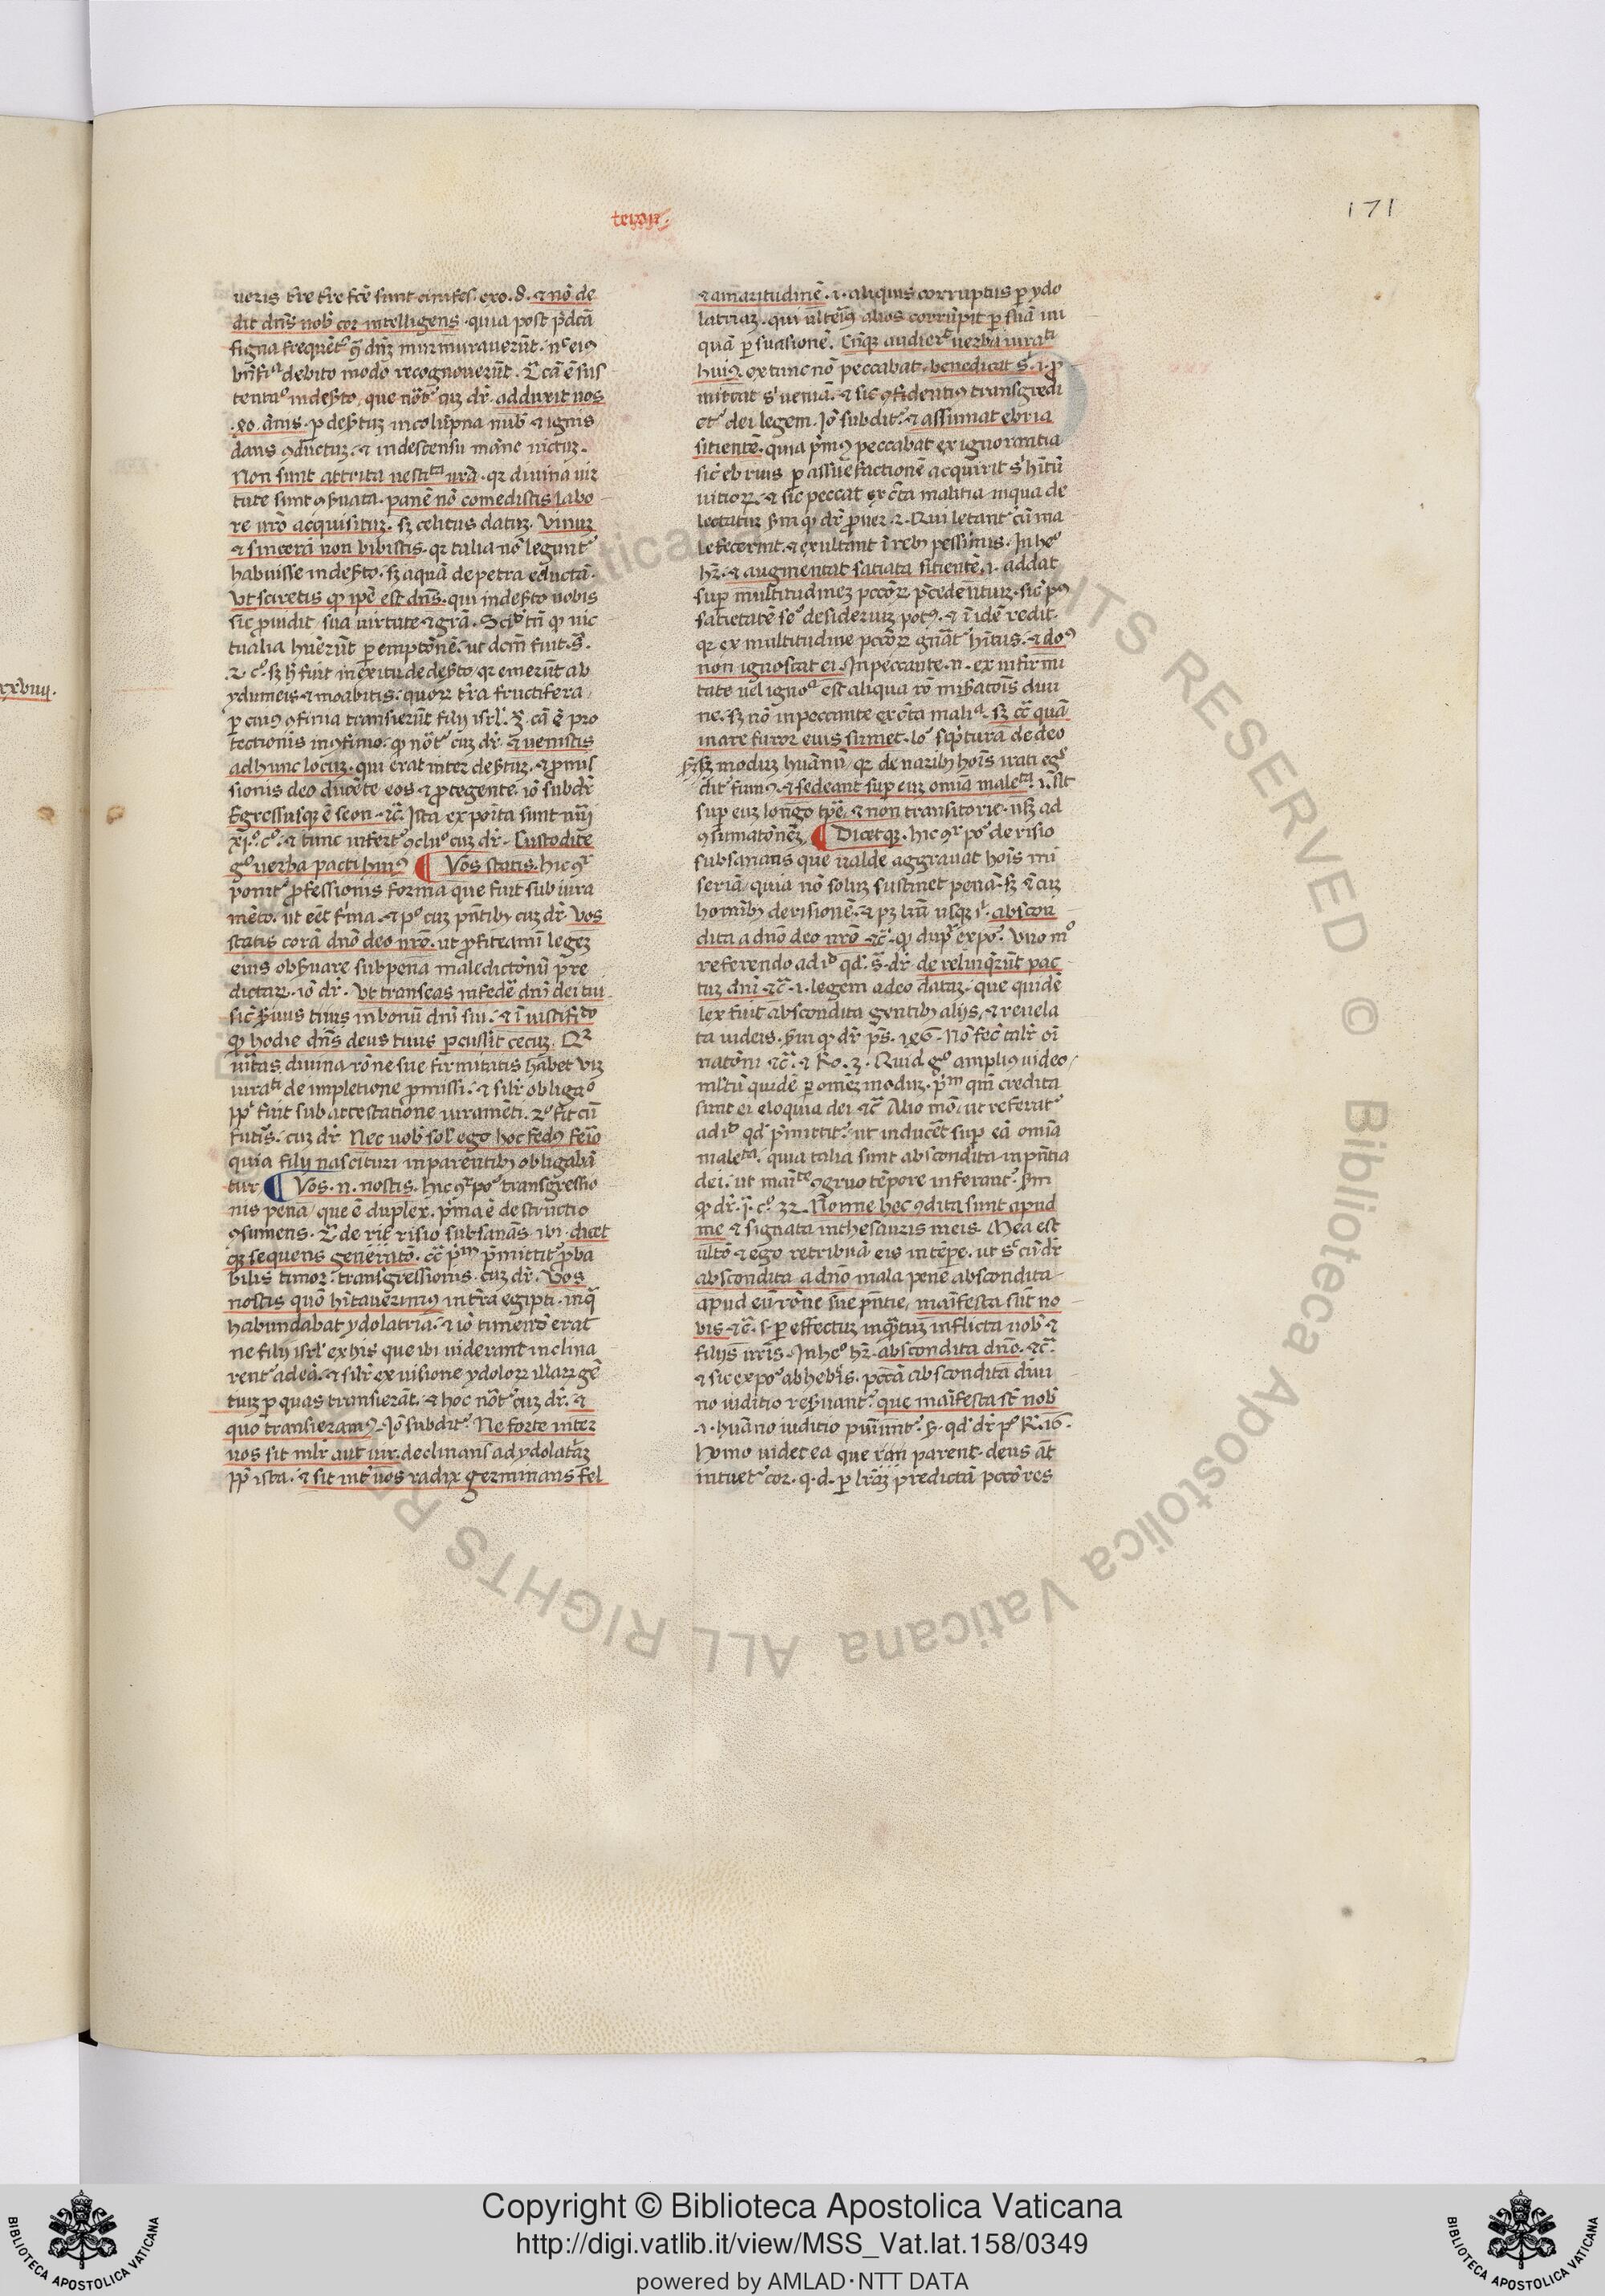 teron.
171
xxviiij.
ueris t̄re t̄re fc̄e sunt cinifes. exo. 8. ⁊ nō de
dit dn̄s nob̄ cor intelligens. quia post p̄dcā
signa frequēt᷑ ꝯ̄ dn̄ꝫ murmurauer̄ūt. nc̄ eiꝰ
bn̄fi debito modo recognouer̄ūt. cā ē sus
tentaᵒ in deſ̄to, que nōt᷑ cuꝫ dr̄. adduxit uos
.xo. ānis. ꝑ deſ̄tuꝫ in colūpna nub̄ ⁊ ignis
dans ꝯductuꝫ. ⁊ in descensu mānē uictuꝫ.
Non sunt attrita uestita ur̄a. qꝛ diuina uir
tute sunt ꝯſ̄uata. panē nō comedistis labo
re ur̄o acquisituꝫ. sꝫ celitus datuꝫ. Vinuꝫ
⁊ sincerā non bibistis. qꝛ talia nō legunt᷑
habuisse in deſ̄to. sꝫ aquā de petra eductā.
Vt sciretis ꝙ ip̄e est dn̄s. qui in deſ̄to uobis
sic ꝓuidit sua uirtute ⁊ gr̄a. Scid̄ tn̄ ꝙ uic
tualia huēr̄ūt ꝑ emptōnē. ut dcm̄ fuit. s̄.
.2. cᵒ. sꝫ h̄ fuit in exitu de deſ̄to qꝛ emer̄ūt ab
ydumeis ⁊ moabitis. quoꝝ t̄ra fructifera
ꝑ cuiꝰ ꝯfinia transier̄ūt filij isrl̄. 3ᵃ. cā ē pro
tectionis in ꝯfinio. ꝙ nōt᷑ cuꝫ dr̄. ⁊ uenistis
ad hunc locuꝫ. qui erat inter deſ̄tuꝫ. ⁊ ꝓmis
sionis deo ducēte eos ⁊ ꝓtegente. iō subdr̄
Egressusqꝫ ē seon. ⁊c̄. Ista expoīta sunt
xj.ᵒ cᵒ. ⁊ tunc infert᷑ ꝯcluᵒ cuꝫ dr̄. Custodite
gᵒ uerba pacti huiꝰ ¶ Vos statis. hic ꝯr̄
ponit᷑ ꝓfessionis forma que fuit sub iura
mēto. ut eēt f̄ma. ⁊ pᵒ cuꝫ pn̄tibꝫ cuꝫ dr̄. Vos
statis corā dn̄o deo ur̄o. ut ꝓfiteamī legeꝫ
eius obſ̄uare sub pena maledictōnū pre
dictaꝝ. iō dr̄. Vt transeas in federe dn̄i dei tui
sic ſ̄uus tuus in bonū dn̄i sui.
ꝙ hodie dn̄s deus tuus percussit tecuꝫ. Qꝛ
ueritas diuina rōne sue firmitatis habet uiꝫ
iurati de impletione ꝓmissi. ⁊ silr̄ obligaᵒ
ppl̄i fuit sub attestatione iuramēti. 2ᵒ fit cū
futis. cuꝫ dr̄. Nec uob̄ sol̄ ego hoc fedꝰ ferio
quia filij nascituri in parentibꝫ obligabā
tur ¶ Vos .n. nostis. hic ꝯr̄ poᵒ transgressio
nis pena, que ē duplex. pᵃma ē destructio
ꝯsumens. 2ᵃ derisio subsanās. ibi. dicet
qꝫ sequens gene
bilis timor. transgressionis. cuꝫ dr̄. Vos
nostis quō hītauerimꝰ in t̄ra egipti. in qᵃ
habundabat ydolatria. ⁊ iō timendū erat
ne filij isrl̄ ex his que ibi uiderant inclina
rent᷑ ad eā. ⁊ silr̄ ex uisione ydoloꝝ illaꝝ gē
tiuꝫ ꝑ quas transierāt. ⁊ hoc nōt᷑ cuꝫ dr̄. ⁊
quō transieramꝰ. Iō subdit᷑. Ne forte inter
uos sit mlr̄ aut uir. declinans ad ydolatⁱaꝫ
ppt̄ ista. ⁊ sit int̄ uos radix germinans fel
⁊ amaritudinē. .i. aliquis corruptus ꝑ ydo
latriaꝫ. qui ulteriꝰ alios corrūpit ꝑ suā ini
quā ꝑsuasionē. Cūqꝫ audierit uerba iurati
huiꝰ. ex tunc nō peccabat. benedicat sⁱ. .i. ꝓ
mittat sⁱ ueniā. ⁊ sic ꝯfidentiꝰ transgredi
et᷑ dei legem. Iō subdit᷑. ⁊ assumat ebria
sitientē. quia pⁱmꝰ peccabat ex ignorantia
sic ebrius ꝑ assuefactionē acquirit sⁱ hitū
uitioꝝ. ⁊ sic peccat ex c̄ta malitia in qua de
lectatur ſm̄ ꝙ dr̄ ꝓuer. 2. Qui letant᷑ cū ma
lefecerint. ⁊ exultant ī rebꝫ pessimis. In heᵒ
hꝫ. ⁊ augmentat satiata sitientē. .i. addat
suꝑ multitudinem pctōꝝ p̄cedentiuꝫ. sic pꝰ
satietatē seᵒ desideriuꝫ potꝰ. ⁊ ī idē redit.
qꝛ ex multitudine pctōꝝ gn̄at᷑ hitus. ⁊ doꝰ
non ignoscat ei. In peccante .n. ex infirmi
tate uel ignoᵃ est aliqua rō misᵉatōis diui
ne. sꝫ nō in peccante ex c̄ta maliᵃ. sꝫ cc̄ quā
mare furor eius fumet. Ioᵒ scⁱptura de deo
ſ̄ꝫ moduꝫ huānū, qꝛ de naribꝫ hoīs irati egᵒ
dit᷑ fumꝰ. ⁊ sedeant suꝑ euꝫ omīa maleta. īsit
suꝑ euꝫ longo tpr̄e. ⁊ non transitorie. usqꝫ ad
ꝯsumatōneꝫ ¶ Dicetqꝫ. hic ꝯr̄ poᵒ derisio
subsanans que ualde aggrauat hoīs mi
seriā, quia nō soluꝫ sustinet penā. sꝫ ⁊ cuꝫ
homībꝫ derisionē. ⁊ pꝫ lr̄a usqꝫ iᵇ. abscon
dita a dn̄o deo nr̄o ⁊c̄. ꝙ dupᵉ expoᵒ. Vno mᵒ
referendo ad id qd̄. s̄. dr̄ derelinqᵉrūt pac
tuꝫ dn̄i ⁊c̄. .i. legem a deo dataꝫ. que quidē
lex fuit abscondita gentibꝫ alijs, ⁊ reuela
ta iudeis. ſm̄ ꝙ dr̄ pˢ. 146. Nō fec̄ talr̄ oī
natōni ⁊c̄. ⁊ Ro. 3. Quid gᵒ ampliꝰ iudeo,
ml̄tū quidē ꝑ omeꝫ moduꝫ. pⁱm qm̄ credita
sunt ei eloquia dei ⁊c̄. Alio mō. ut referat᷑
ad id qd̄ pⁱmittit᷑. ut inducēt suꝑ eā omīa
maleta. quia talia sunt abscondita in pn̄tia
dei. ut ꝯgruo tēpore inferant᷑. ſm̄
ꝙ dr̄. iᵃ. cᵒ. 32. Nōnne hec ꝯdita sunt apud
me ⁊ signata in thesauris meis. Mea est
ultō ⁊ ego retribuā eis in tēpe. ut sⁱc cū dr̄
abscondita a dn̄o mala pene abscondita
apud eū rōne sue pn̄tie, manifesta sūt no
bis ⁊c̄. s. ꝑ effectuꝫ inqᵃtuꝫ inflicta uob̄ ⁊
filijs ur̄is. In heᵒ hꝫ. abscondita dn̄o. ⁊c̄.
⁊ sic expoᵒ ab hebⁱis. pctā abscondita diui
no iuditio resⁱuant᷑. que manifesta st̄ nob̄
.i. huāno iuditio puniunt᷑. s̄. qd̄ dr̄ pᵒ R̄. 16.
Homo uidet ea que parent. deus āt
intuet᷑ cor. q. d. ꝑ lr̄aꝫ predictā pctōres
Copyright © Biblioteca Apostolica Vaticana
http://digi.vatlib.it/view/MSS_Vat.lat.158/0349
powered by AMLAD·NTT DATA
BIBLIOTECA APOSTOLICA VATICANA
BIBLIOTECA APOSTOLICA VATICANA
© Biblioteca Apostolica Vaticana ALL RIGHTS RESERVED